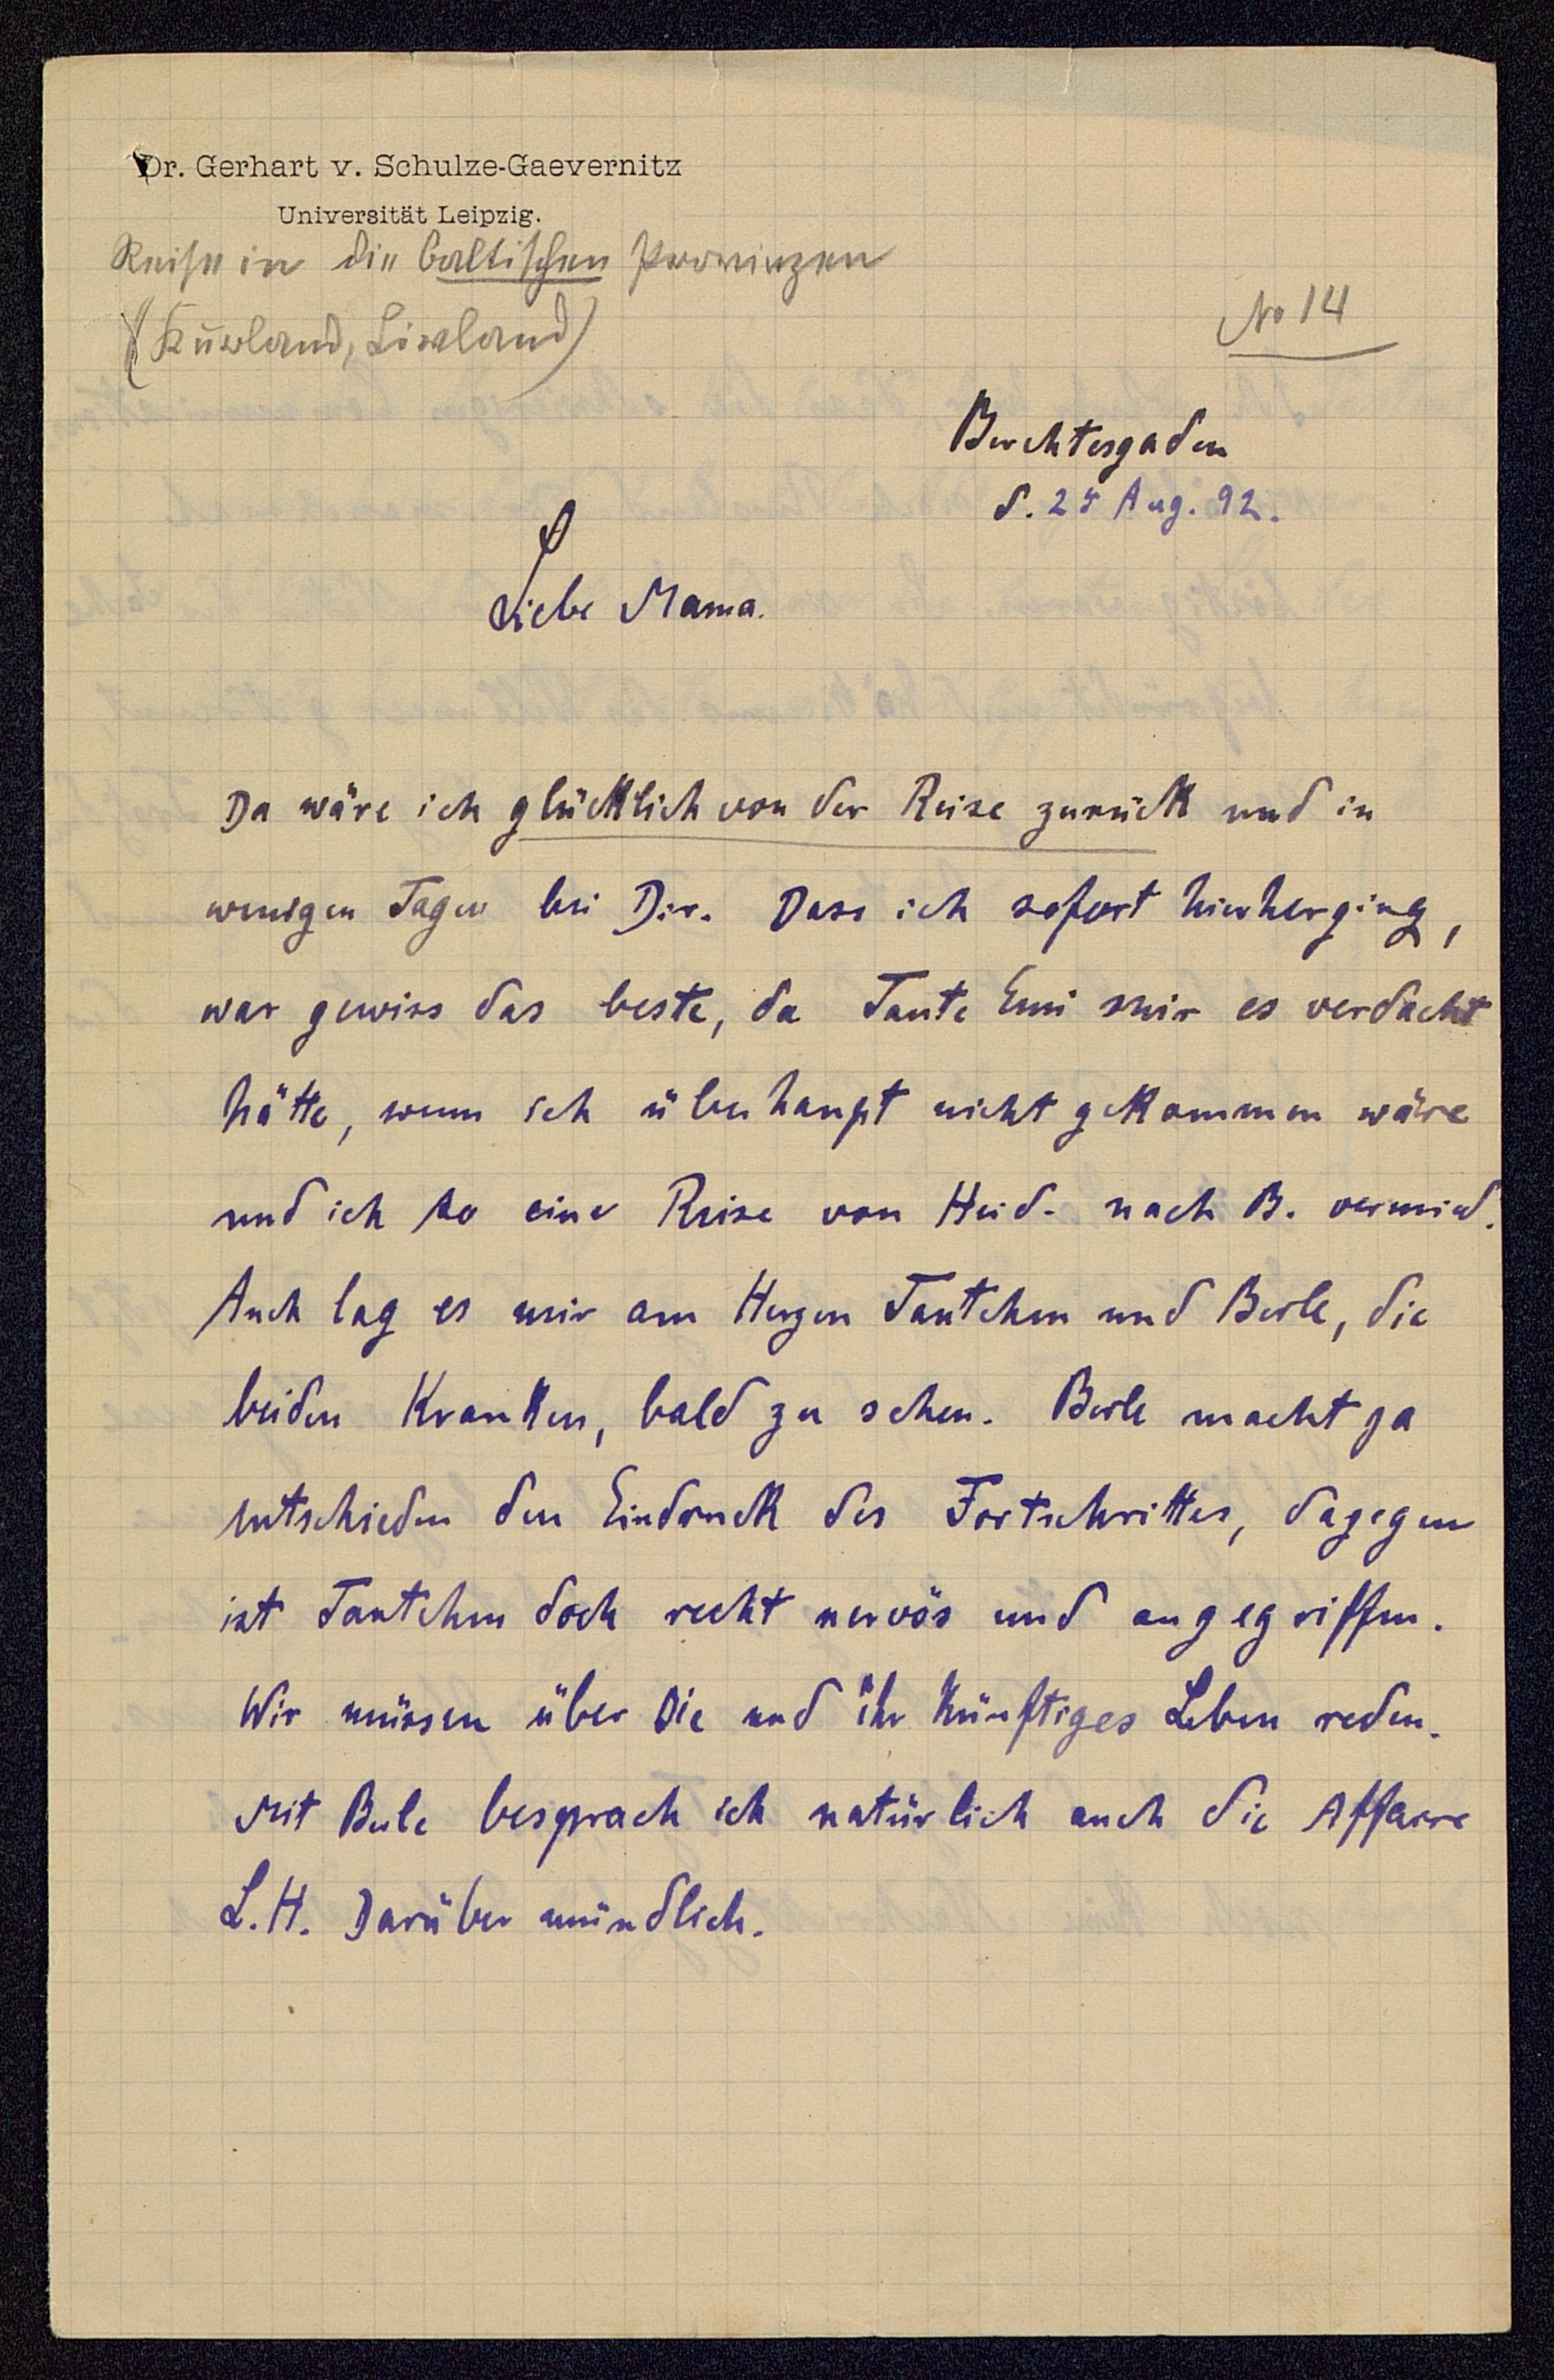 Dr. Gerhart v. Schulze-Gaevernitz
Universität Leipzig.
Reise in die baltischen Provinzen
(Kurland, Livland)
No 14
Berchtesgaden
d. 25 Aug. 92.
Liebe Mama.
Da wäre ich glücklich von der Reise zurück und in
wenigen Tagen bei Dir. Dass ich sofort hierherging,
war gewiss das beste, da Tante Emi mir es verdacht
hätte, wenn ich überhaupt nicht gekommen wäre
und ich so eine Reise von Heid. nach B. vermied.
Auch lag es mir am Herzen Tantchen und Berle, die
beiden Kranken, bald zu sehen. Berle macht ja
entschieden den Eindruck des Fortschrittes, dagegen
ist Tantchen doch recht nervös und angegriffen.
Wir müssen über Sie und ihr künftiges Leben reden.
Mit Berle besprach ich natürlich auch die Affaire
L. H. Darüber mündlich.